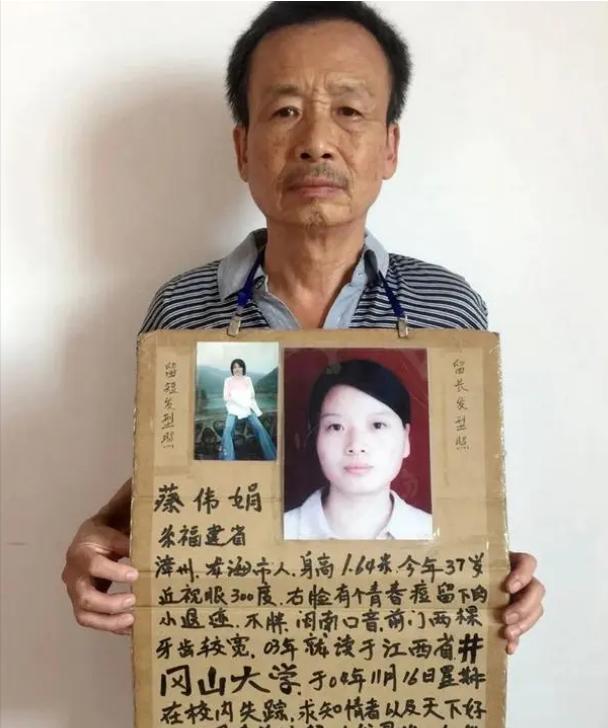 留短发型照
留长发型照
蔡伟娟
福建省
漳州.龙海市人.身高1.64米.今年37岁
近视眼300度.右脸有个青春痘留下的
小 不胖.闽南口音.前门两棵
牙齿较宽.03年就读于江西省井
冈山大学.于04年11月16日星期
在校内失踪.求知情者以及天下好